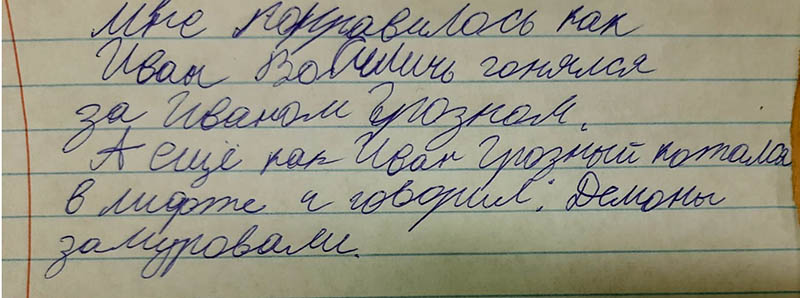 мне понравилось как
Иван Василичь гонялся
за Иваном Грозном.
А ещё как Иван Грозный котался
в лифте и говорил: Демоны
замуровали.